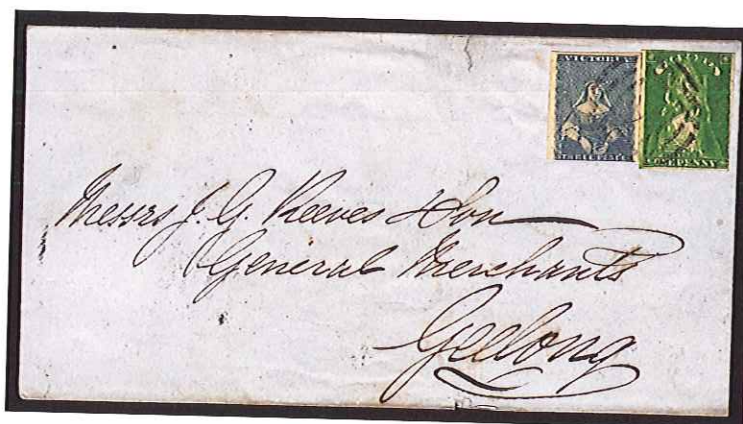 VICTORIA
THREE PENCE
ONE PENNY
Messrs J. G. Reeves & Son
General Merchants
Geelong